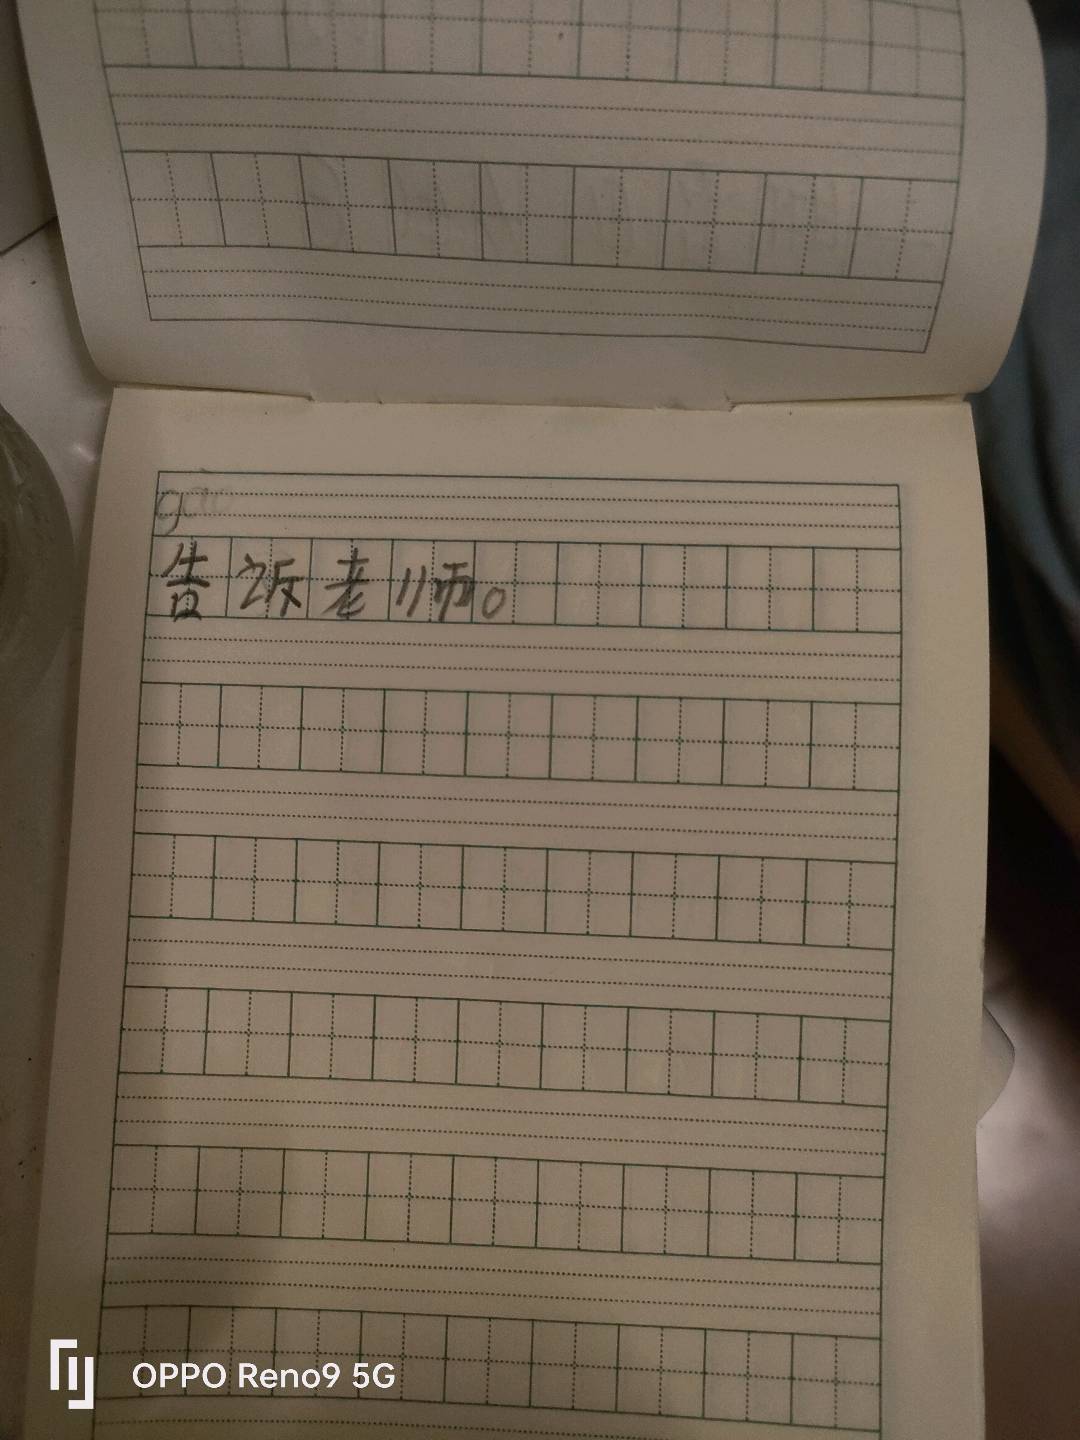 gào
告诉老师。
OPPO Reno9 5G